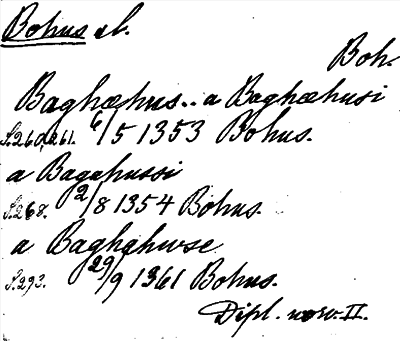 Bohus sl.
Boh.
Baghæhus.. a Baghæhusi
S.260,261. 6/5 1353 Bohus.
a Bagahussi
S.268. 2/8 1354 Bohus.
a Baghahwse
S.293. 29/9 1361 Bohus.
Dipl. norv. II.